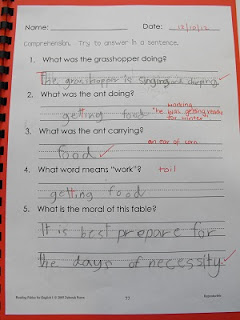 Name: Date: 12/10/12
Comprehension. Try to answer in a sentence.
1. What was the grasshopper doing?
The grasshopper is singing and chirping
2. What was the ant doing?
working
getting food "he was getting ready for winter"
3. What was the ant carrying?
an ear of corn
food
4. What word means "work"? toil
getting food
5. What is the moral of this fable?
It is best prepare for
the days of necessity